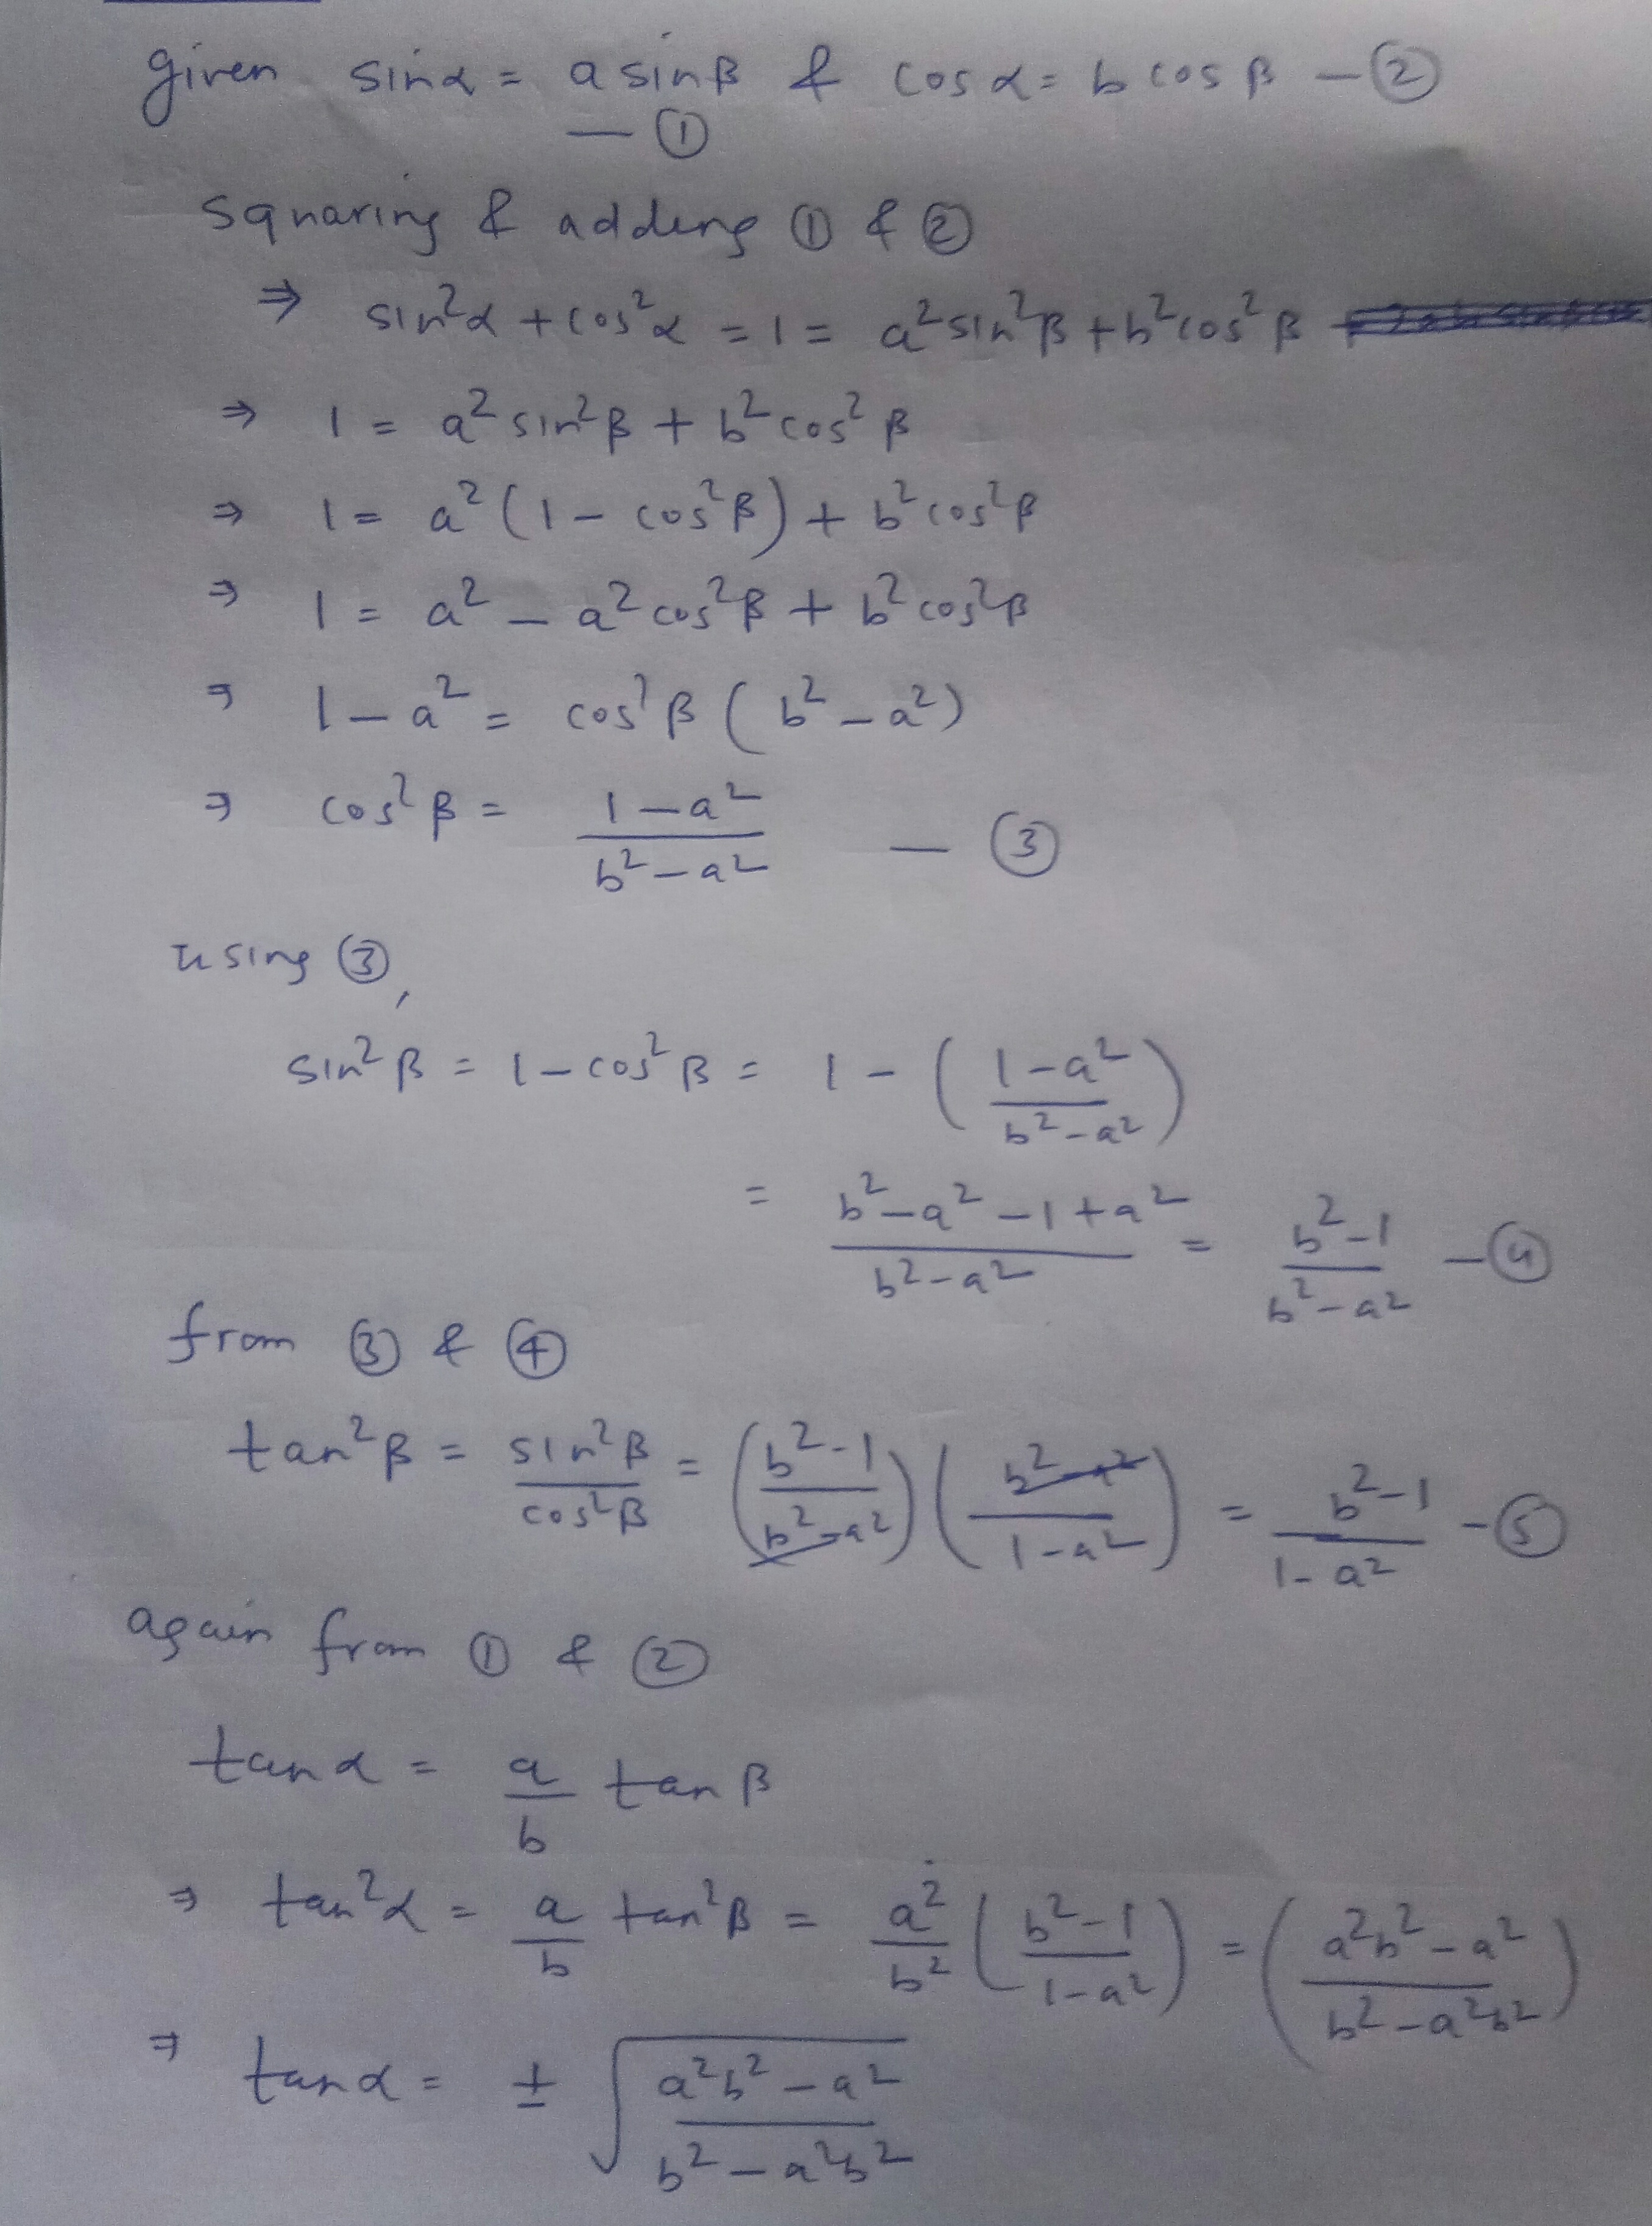 given sinα = a sinβ & cosα = b cosβ — ②
— ①
squaring & adding ① & ②
⇒ sin²α + cos²α = 1 = a² sin²β + b² cos²β
⇒ 1 = a² sin²β + b² cos²β
⇒ 1 = a² (1 − cos²β) + b² cos²β
⇒ 1 = a² − a² cos²β + b² cos²β
⇒ 1 − a² = cos²β (b² − a²)
⇒ cos²β = (1 − a²)/(b² − a²) — ③
using ③,
sin²β = 1 − cos²β = 1 − ((1 − a²)/(b² − a²))
= (b² − a² − 1 + a²)/(b² − a²) = (b² − 1)/(b² − a²) — ④
from ③ & ④
tan²β = sin²β/cos²β = ((b² − 1)/(b² − a²)) ((b² − a²)/(1 − a²)) = (b² − 1)/(1 − a²) — ⑤
again from ① & ②
tanα = a/b tanβ
⇒ tan²α = a/b tan²β = a²/b² ((b² − 1)/(1 − a²)) = ((a²b² − a²)/(b² − a²b²))
⇒ tanα = ± √((a²b² − a²)/(b² − a²b²))